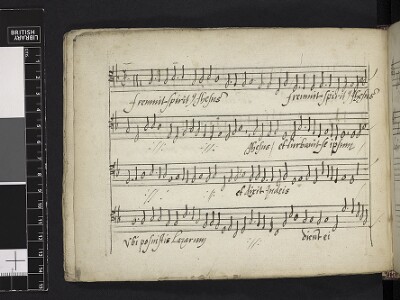 fremuit spirit9 Jhesus fremuit spirit9 Jhesus
:||: :||: Jhesus / et turbavit se ipsum
:||: :||: et dixit Judeis
Ubi posuistis Lazarum :||: dicunt ei
BRITISH LIBRARY